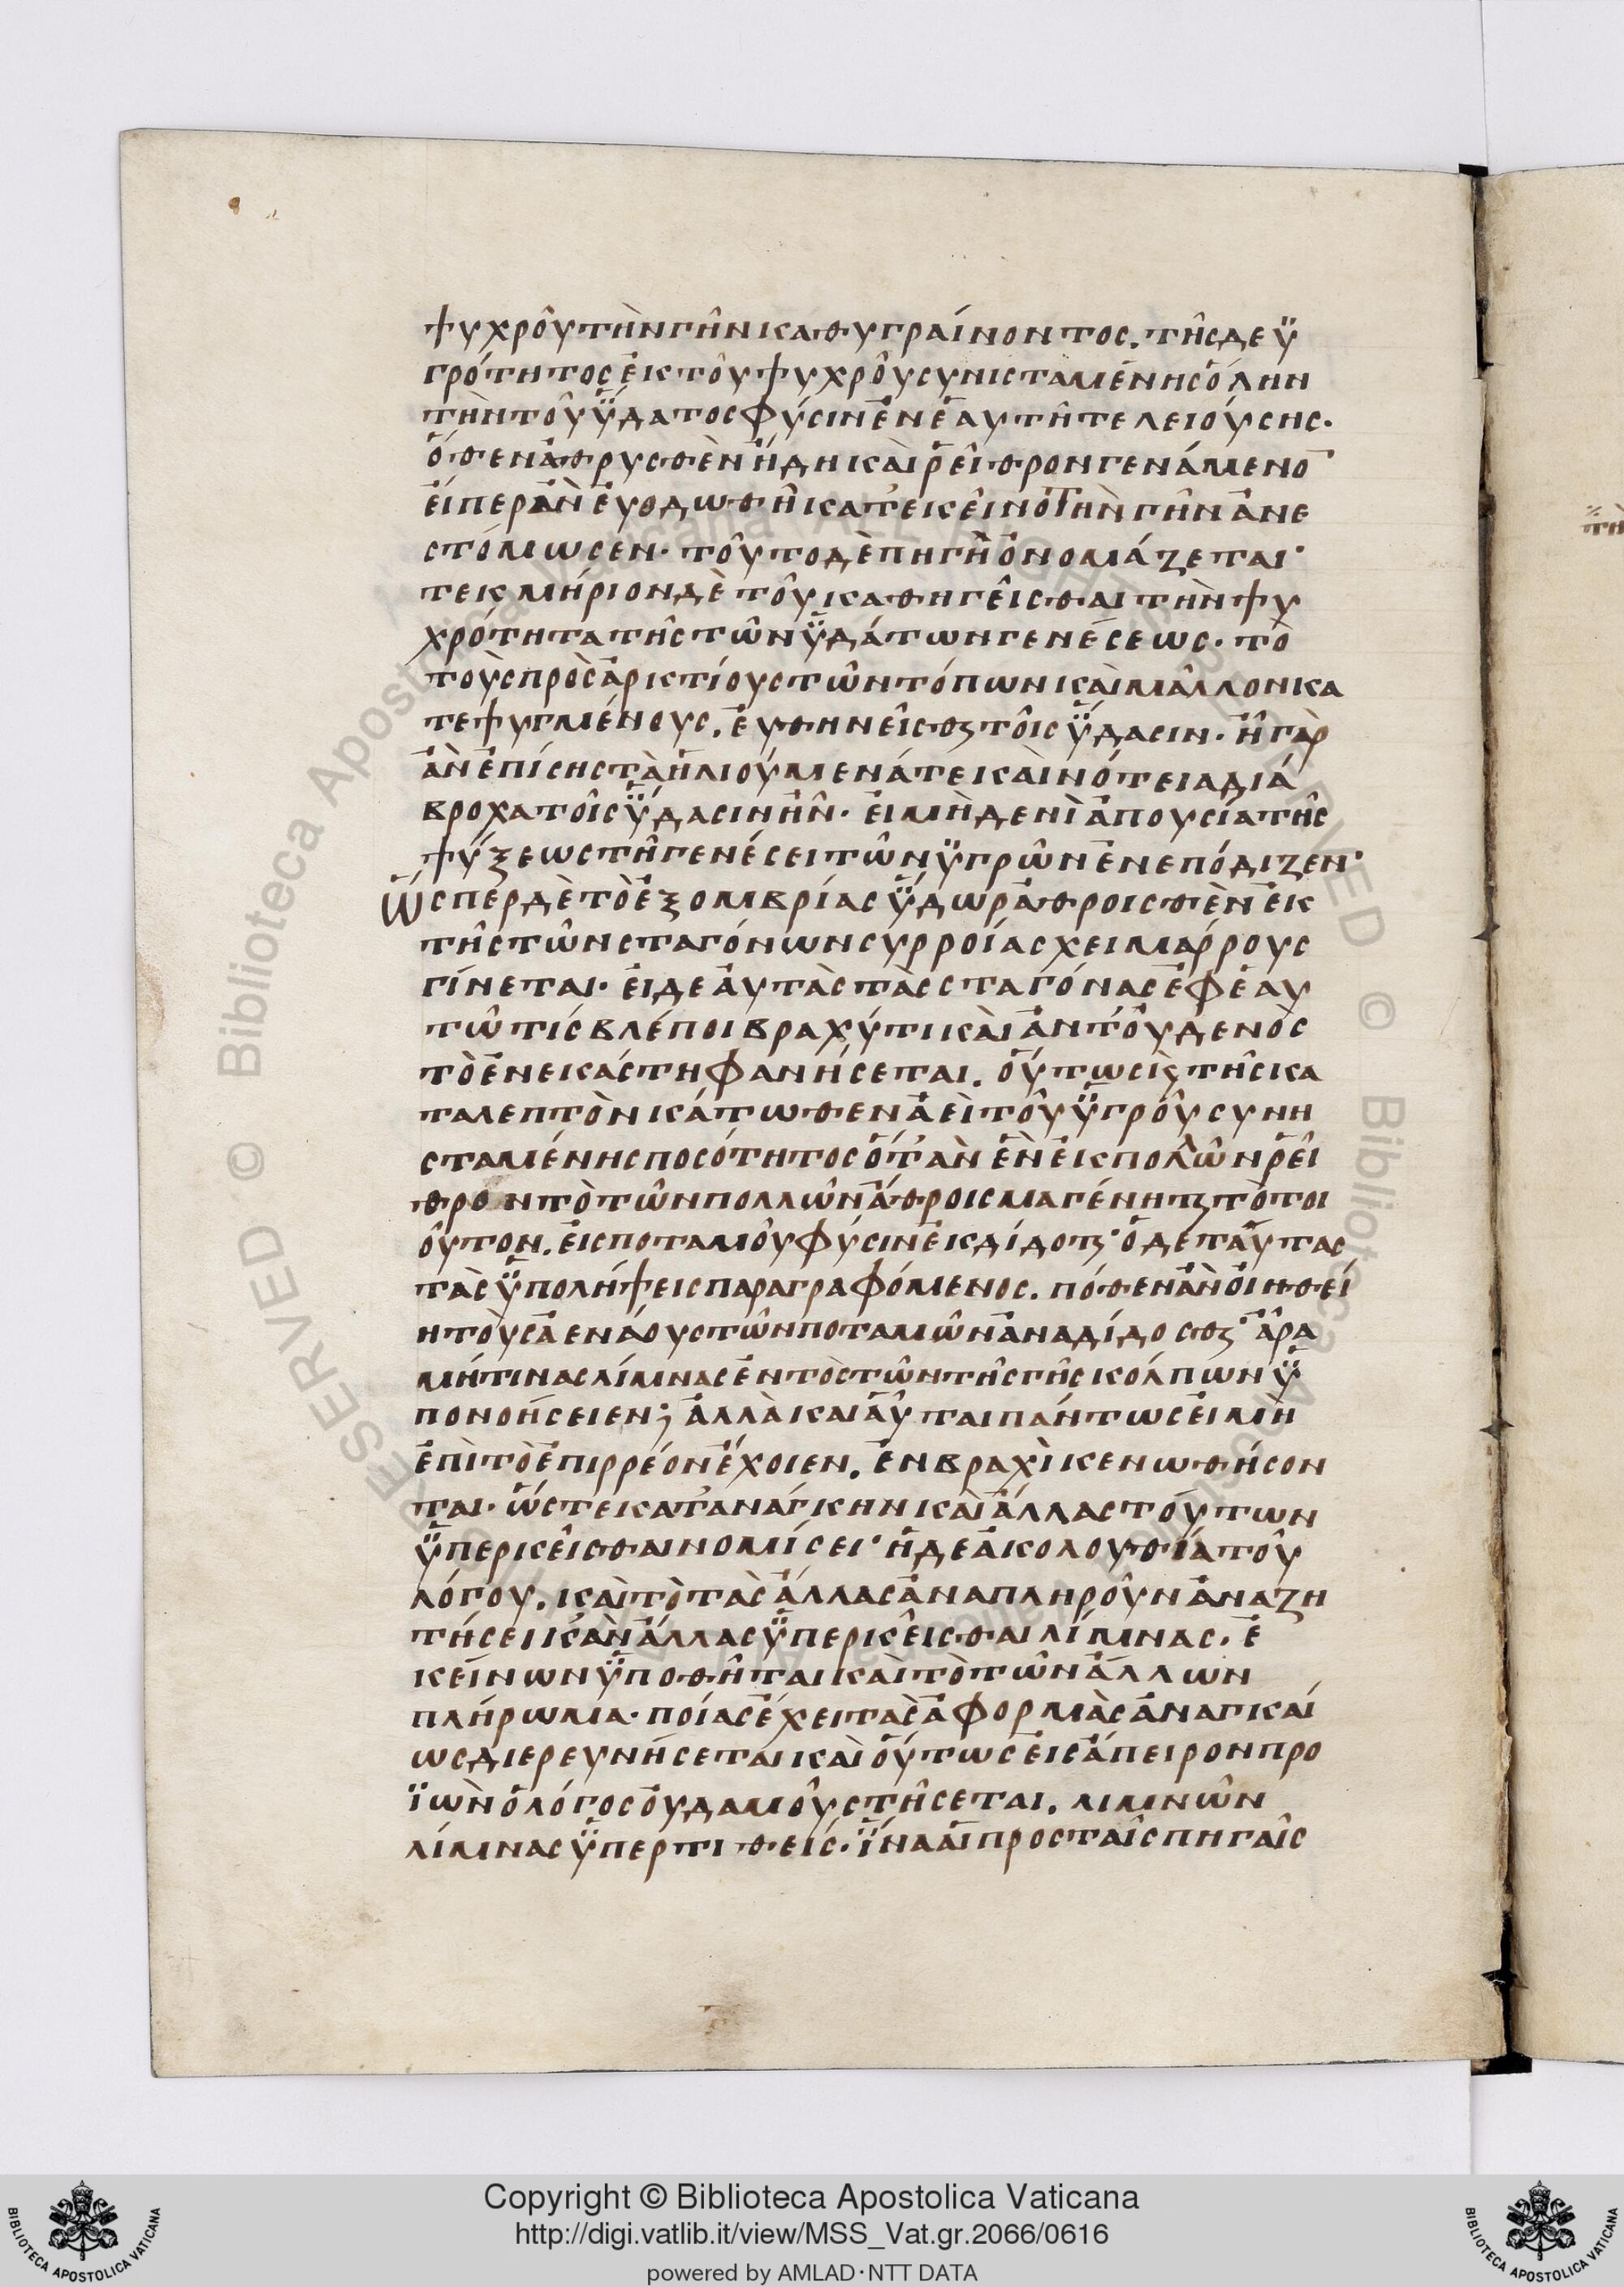 ψυχροῦ τὴν γῆν καθυγραίνοντος. τῆς δε ὑ
γρότητος ἐκ τοῦ ψυχροῦ συνισταμένης ὅλην
τὴν τοῦ ὕδατος φύσιν ἐν ἑαυτῆ τελειούσης.
ὅθεν ἀθρυσθὲν ἤδη καὶ ῥεῖθρον γενάμενο̅
εἴπερ ἂν ἐυοδωθῆ κατ' εκεῖνο τὴν γῆν ἀνε
στόμωσεν· τοῦτο δὲ πηγὴ ὀνομάζεται·
τεκμήριον δὲ τοῦ καθηγεῖσθαι τὴν ψυ
χρότητα τῆς τῶν ὑδάτων γενέσεως· τὸ
τοὺς προσἀρκτίους τῶν τόπων καὶ μᾶλλον κα
τεψυγμένους. ἐυθηνεῖσθαι τοῖς ὕδασιν· ἦ γὰρ
ἂν ἐπίσης τὰ ἡλιούμενά τε καὶ νότεια διά
βροχα τοῖς ὕδασιν ἦν· εἰ μὴδενὶ ἀπουσία τῆς
ψύξεως τῆ γενέσει τῶν ὑγρῶν ἐνεπόδιζεν·
ὥσπερ δὲ τὸ ἐξ ομβρίας ὕδωρ ἀθροισθὲν ἐκ
τῆς τῶν σταγόνων συρροίας χειμάρρους
γίνεται· εἰ δε ἀυτὰς τὰς σταγόνας ἐφ ἑαυ
τῶ τίς βλέποι βραχύ τι καὶ ἀντ' ὀυδενὸς
τὸ ἐν εκάστη φανήσεται. ὅυτως κ τῆς κα
τα λεπτὸν κάτωθεν ἀεὶ τοῦ ὑγροῦ συνη
σταμένης ποσότητος ὅτ' ἀν ἓν ἐκ πολλῶν ῥεῖ
θρον τὸ τῶν πολλῶν ἄθροισμα γένηται τὸ τοι
οῦτον. ἐις ποταμοῦ φύσιν ἐκδίδοται· ὁ δε ταύτας
τὰς ὑπολήψεις παραγραφόμενος. πόθεν ἂν ὀιηθεί
η τοὺς ἀενάους τῶν ποταμῶν ἀναδίδοσθαι· ἆρα
μή τινας λίμνας ἐντὸς τῶν τῆς γῆς κόλπων ὑ
πονοήσειεν; ἀλλὰ και ἆυται πάντως ἐι μὴ
ἐπὶ τὸ ἐπιρρέον ἔχοιεν. ἐν βραχὶ κενωθήσον
ται· ὥστε κατ' ανάγκην καὶ ἄλλας τούτων
ὑπερκεῖσθαι νομίσει· ἡ δε ἀκολουθία τοῦ
λόγου. καὶ τὸ τὰς ἄλλας ἀναπληροῦν ἀναζη
τήσει κ' ἂν ἄλλας ὑπερκεῖσθαι λίμνας. ἐ
κείνων ὑποθῆται καὶ τὸ τῶν ἄλλων
πλήρωμα· ποίας ἔχει τὰς ἀφορμὰς ἀναγκαί
ως διερευνήσεται καὶ ὅυτως ἐις ἄπειρον προ
ϊὼν ὁ λόγος ὀυδαμοῦ στῆσεται. λιμνῶν
λίμνας ὑπερτιθείς· ἵνα ἁι προς ταῖς πηγαῖς
Copyright © Biblioteca Apostolica Vaticana
http://digi.vatlib.it/view/MSS_Vat.gr.2066/0616
powered by AMLAD·NTT DATA
BIBLIOTECA APOSTOLICA VATICANA
BIBLIOTECA APOSTOLICA VATICANA